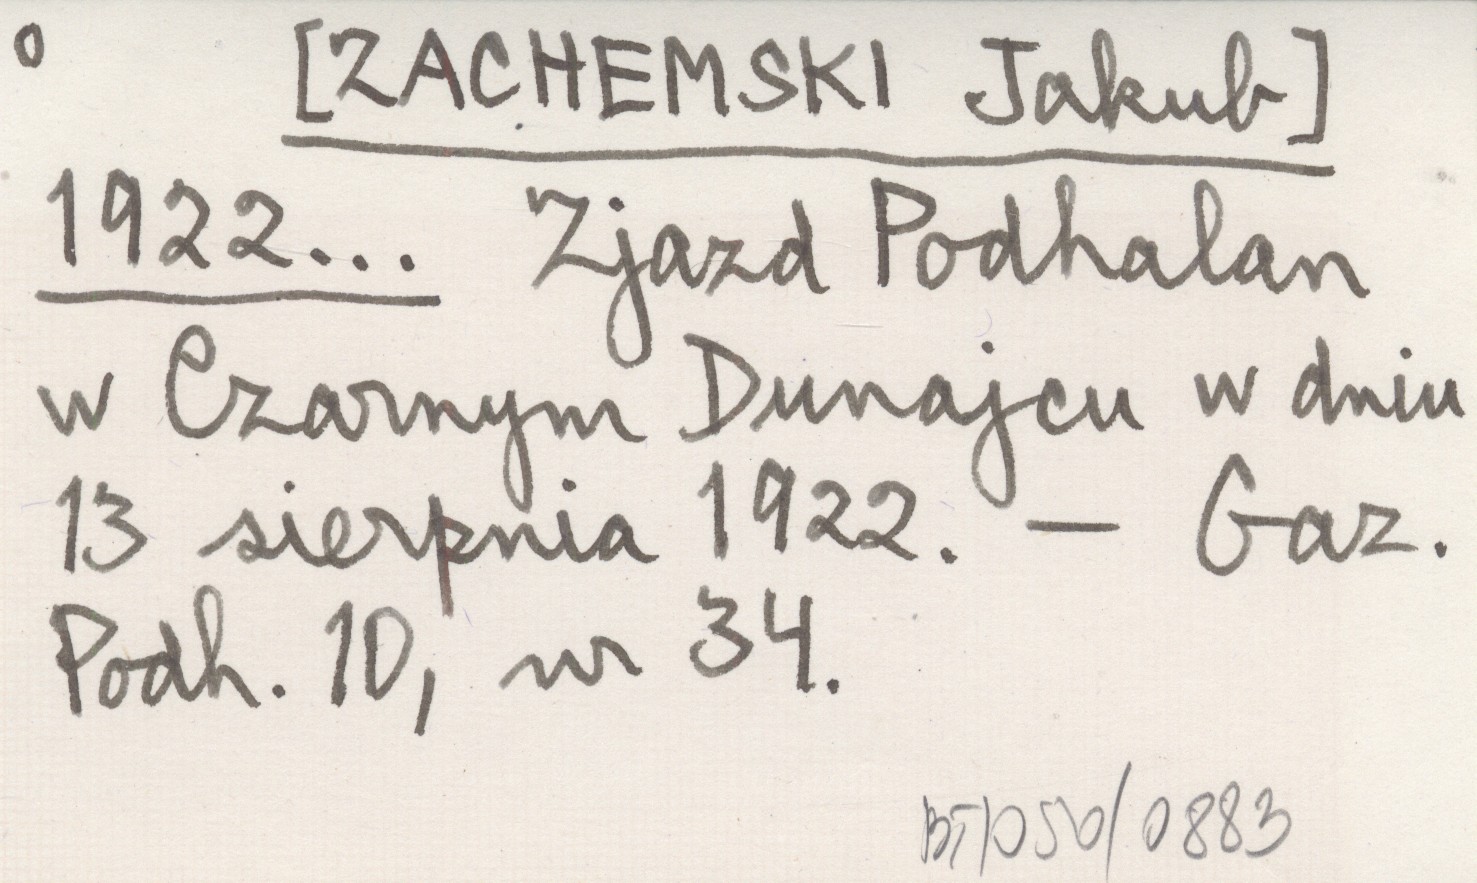 o [ZACHEMSKI Jakub]
1922... Zjazd Podhalan
w Czarnym Dunajcu w dniu
13 sierpnia 1922. — Gaz.
Podh. 10, nr 34.
BT/050/0883